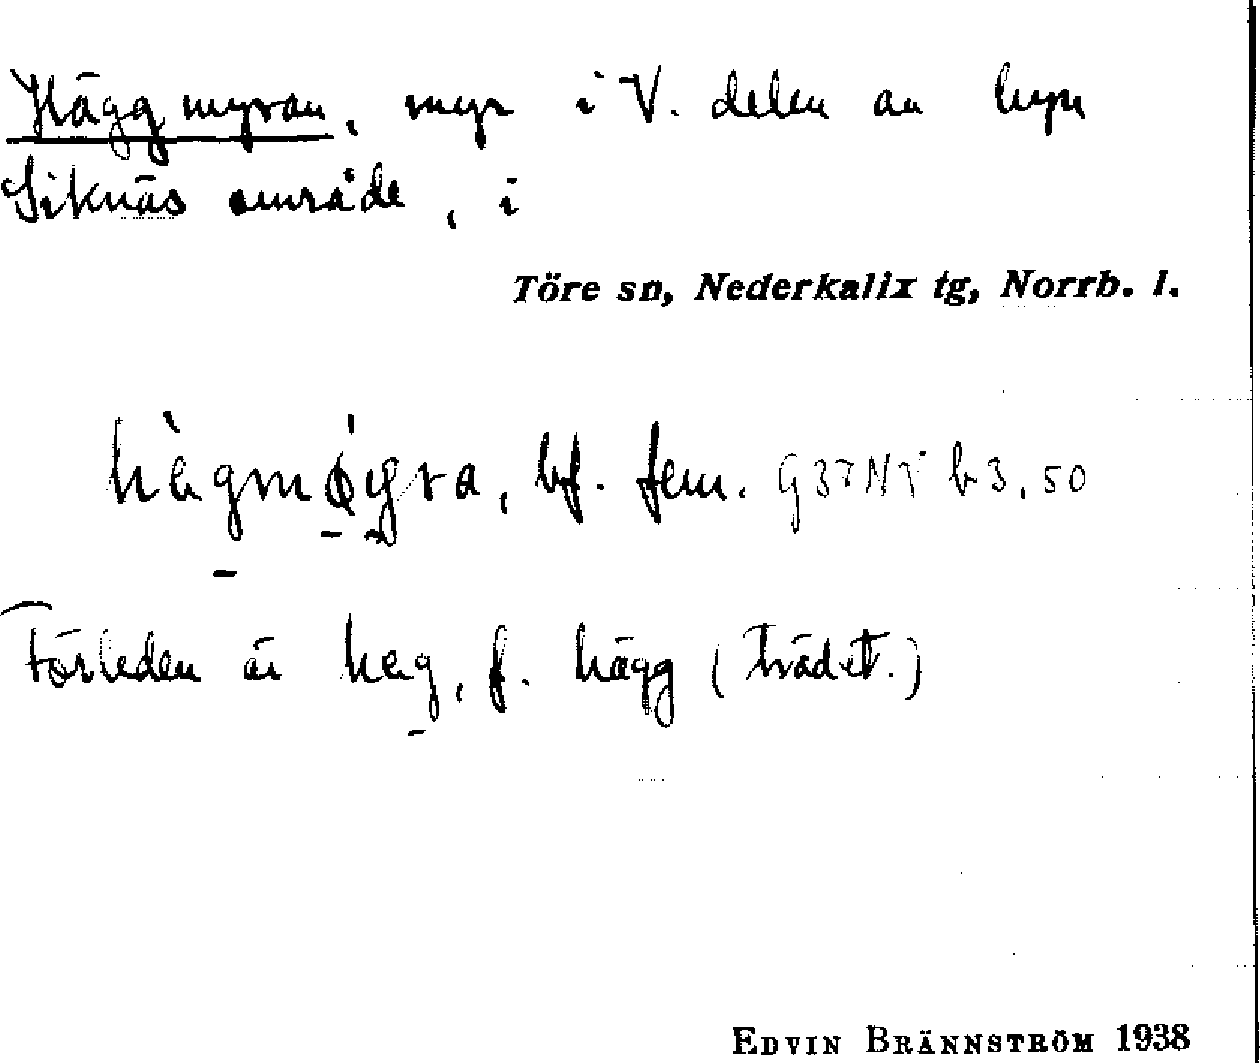 Häggmyran, myr i V. delen av byn
Siknäs område, i
Töre sn, Nederkalix tg, Norrb. l.
hègmǿyra, bf. fem. G37NV b 3,50
Förleden är heg, f. hägg (trädet.)
EDVIN BRÄNNSTRÖM 1938